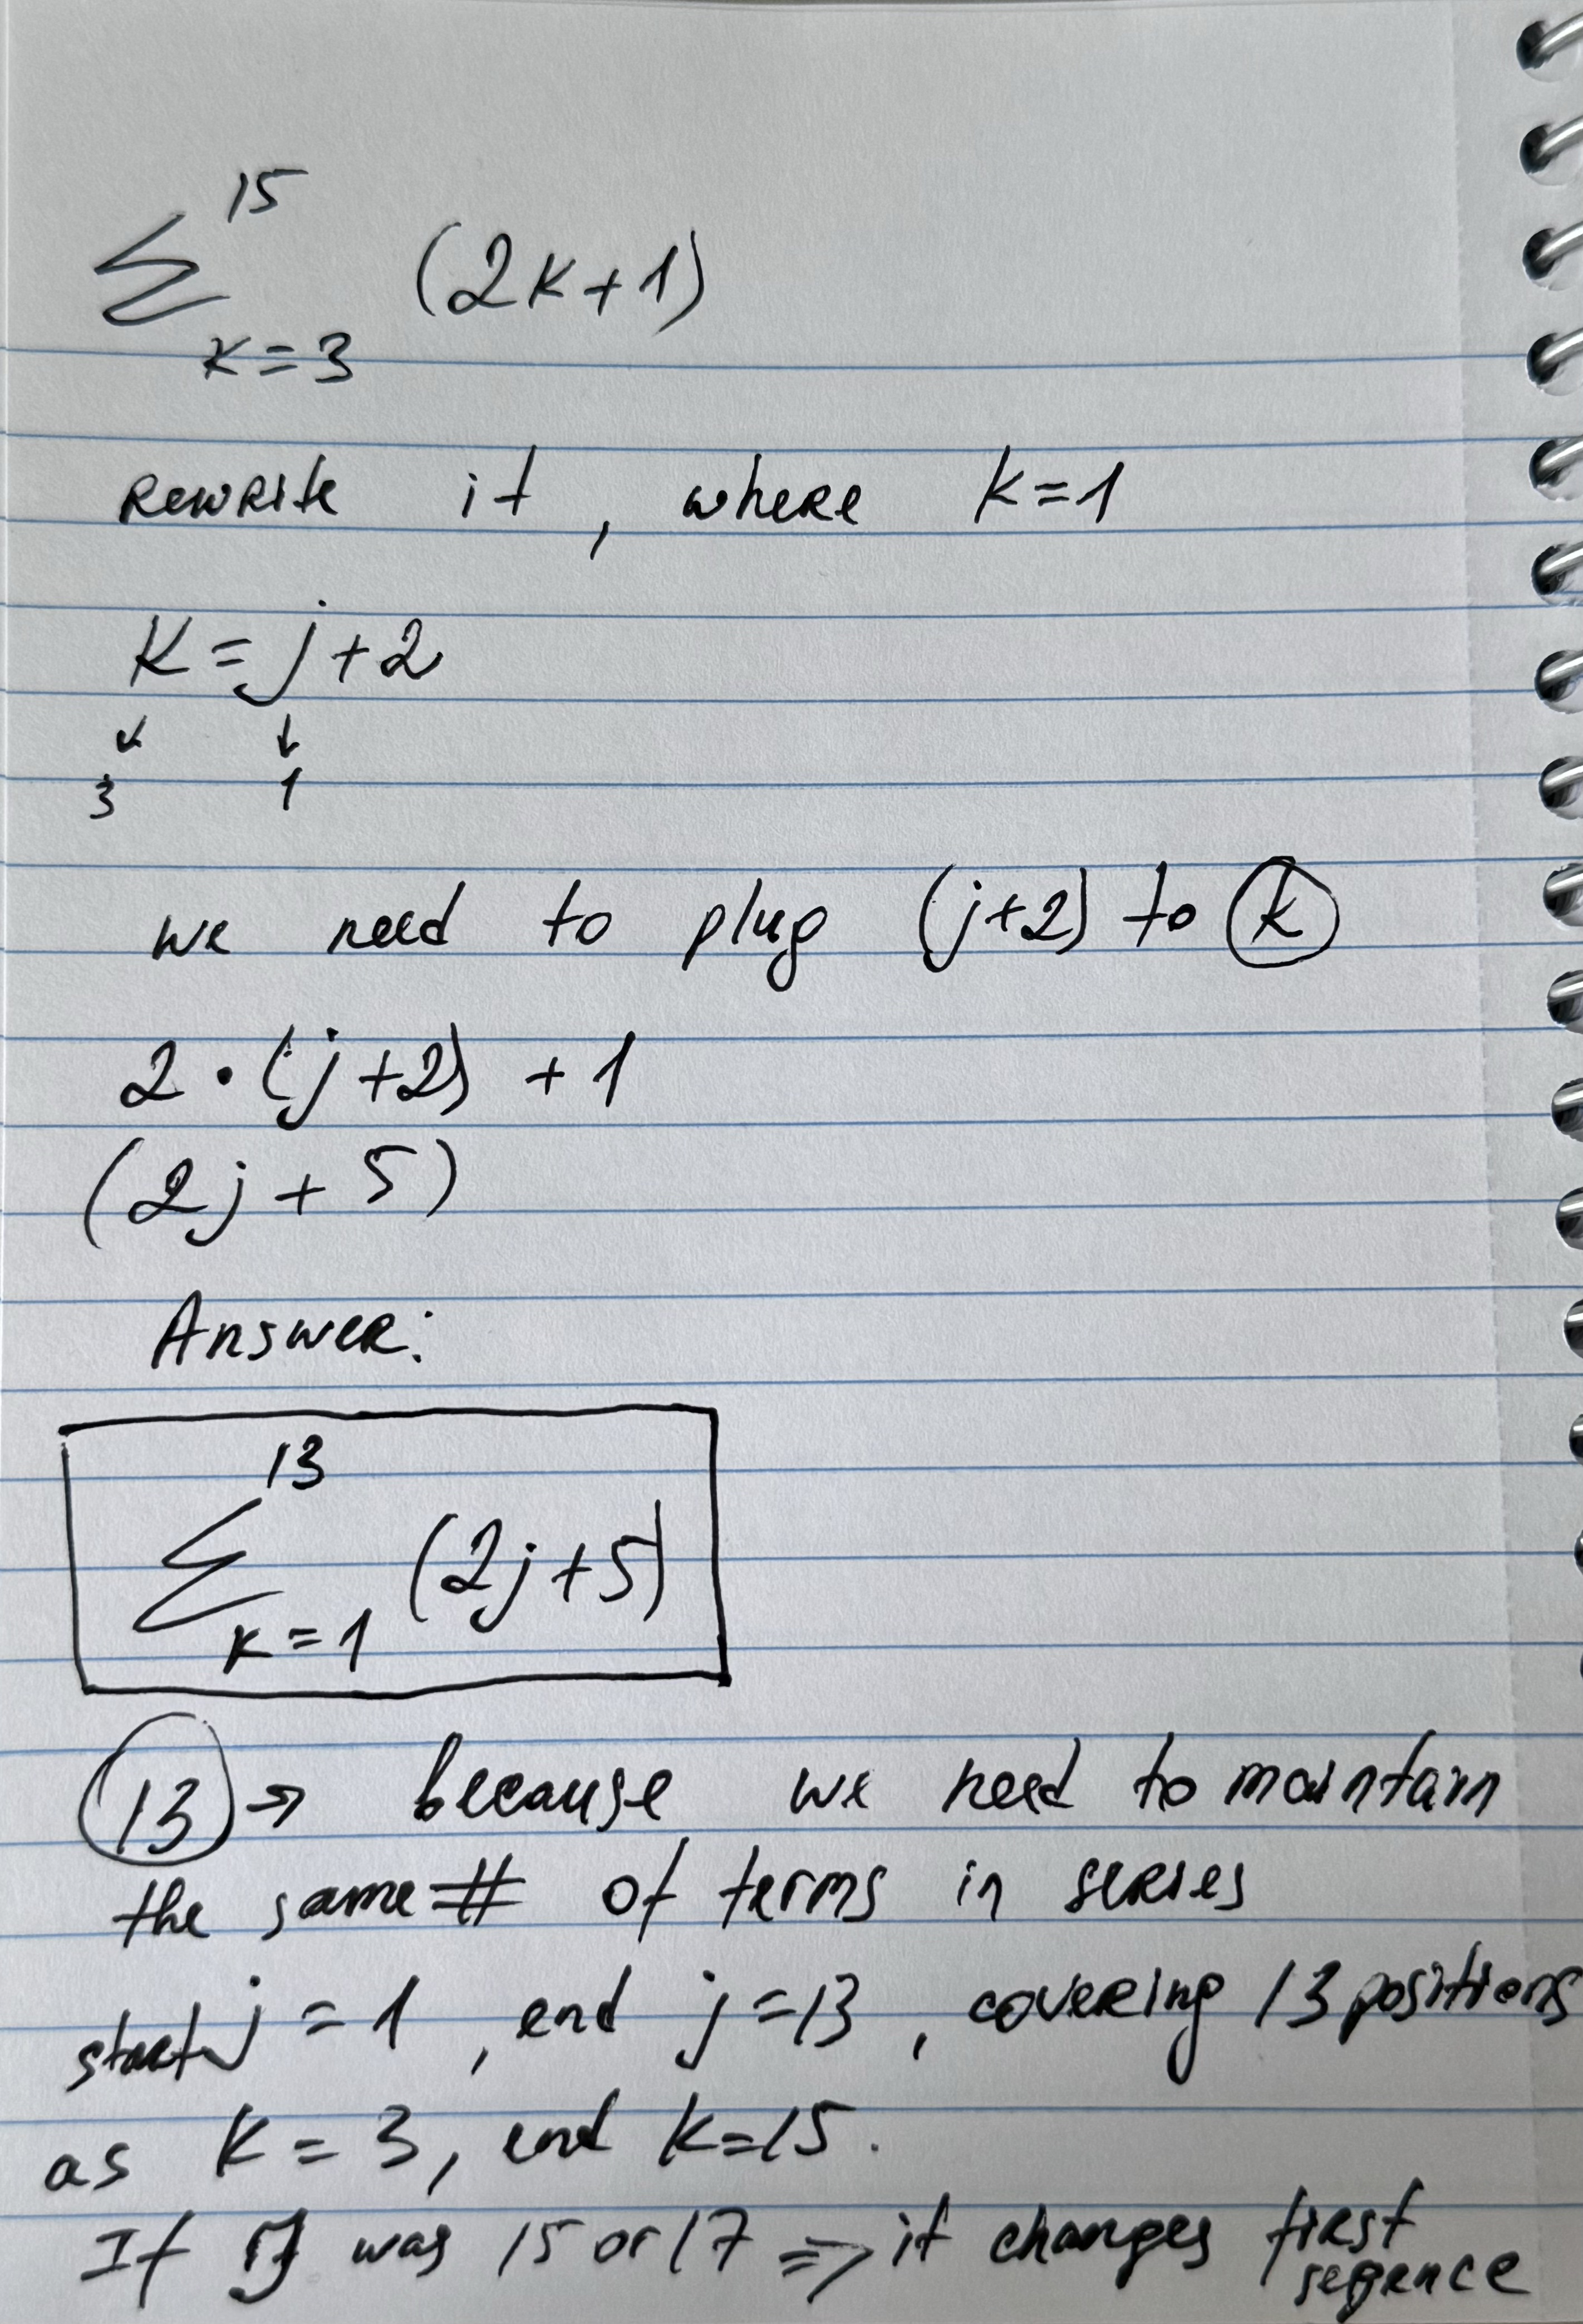 15
∑ (2k+1)
k=3
rewrite it, where k=1
k=j+2
3 1
we need to plug (j+2) to k
2·(j+2)+1
(2j+5)
Answer:
13
∑ (2j+5)
k=1
13 → because we need to maintain
the same # of terms in series
start j=1, end j=13, covering 13 positions
as k=3, end k=15.
If j was 15 or 17 ⇒ it changes first
seqence